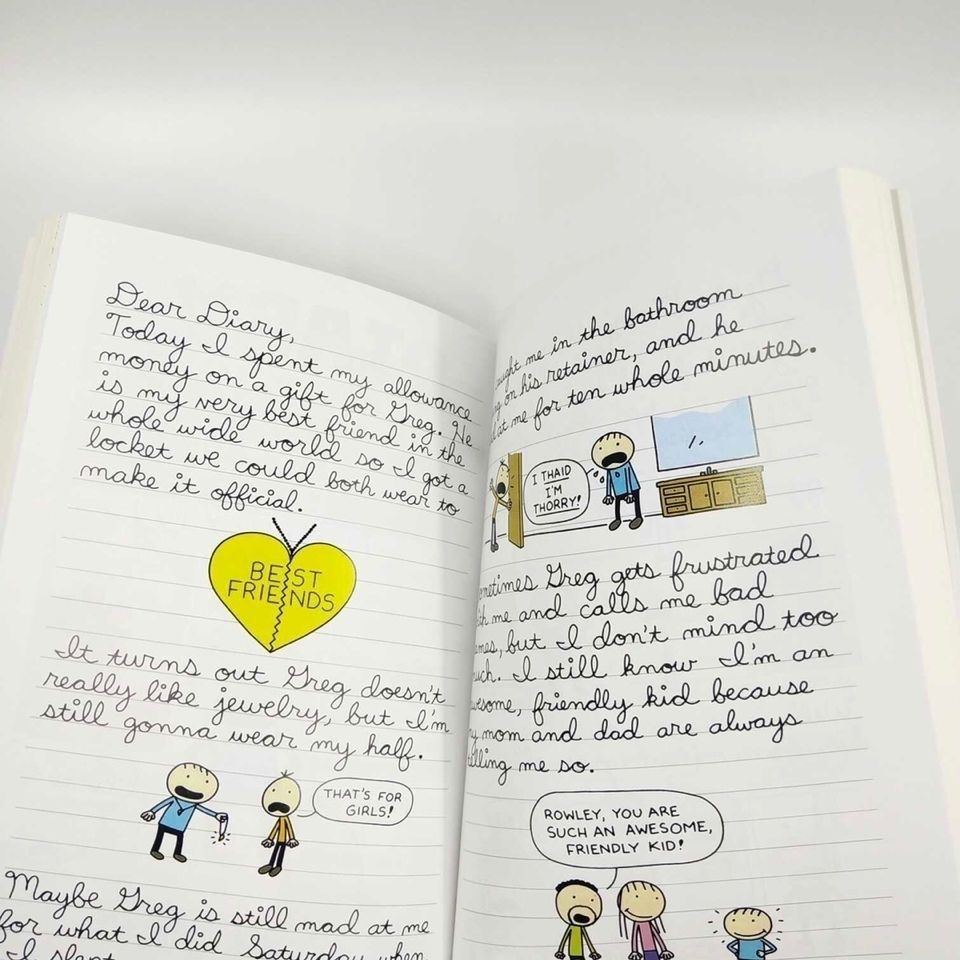 Dear Diary,
Today I spent my allowance
money on a gift for Greg. He
is my very best friend in the
whole wide world so I got a
locket we could both wear to
make it official.
BEST
FRIENDS
It turns out Greg doesn't
really like jewelry, but I'm
still gonna wear my half.
THAT'S FOR
GIRLS!
Maybe Greg is still mad at me
for what I did Saturday when
I slept
me in the bathroom
on his retainer, and he
at me for ten whole minutes.
I THAID
I'M
THORRY!
Greg gets frustrated
me and calls me bad
but I don't mind too
I still know I'm an
friendly kid because
mom and dad are always
me so.
ROWLEY, YOU ARE
SUCH AN AWESOME,
FRIENDLY KID!